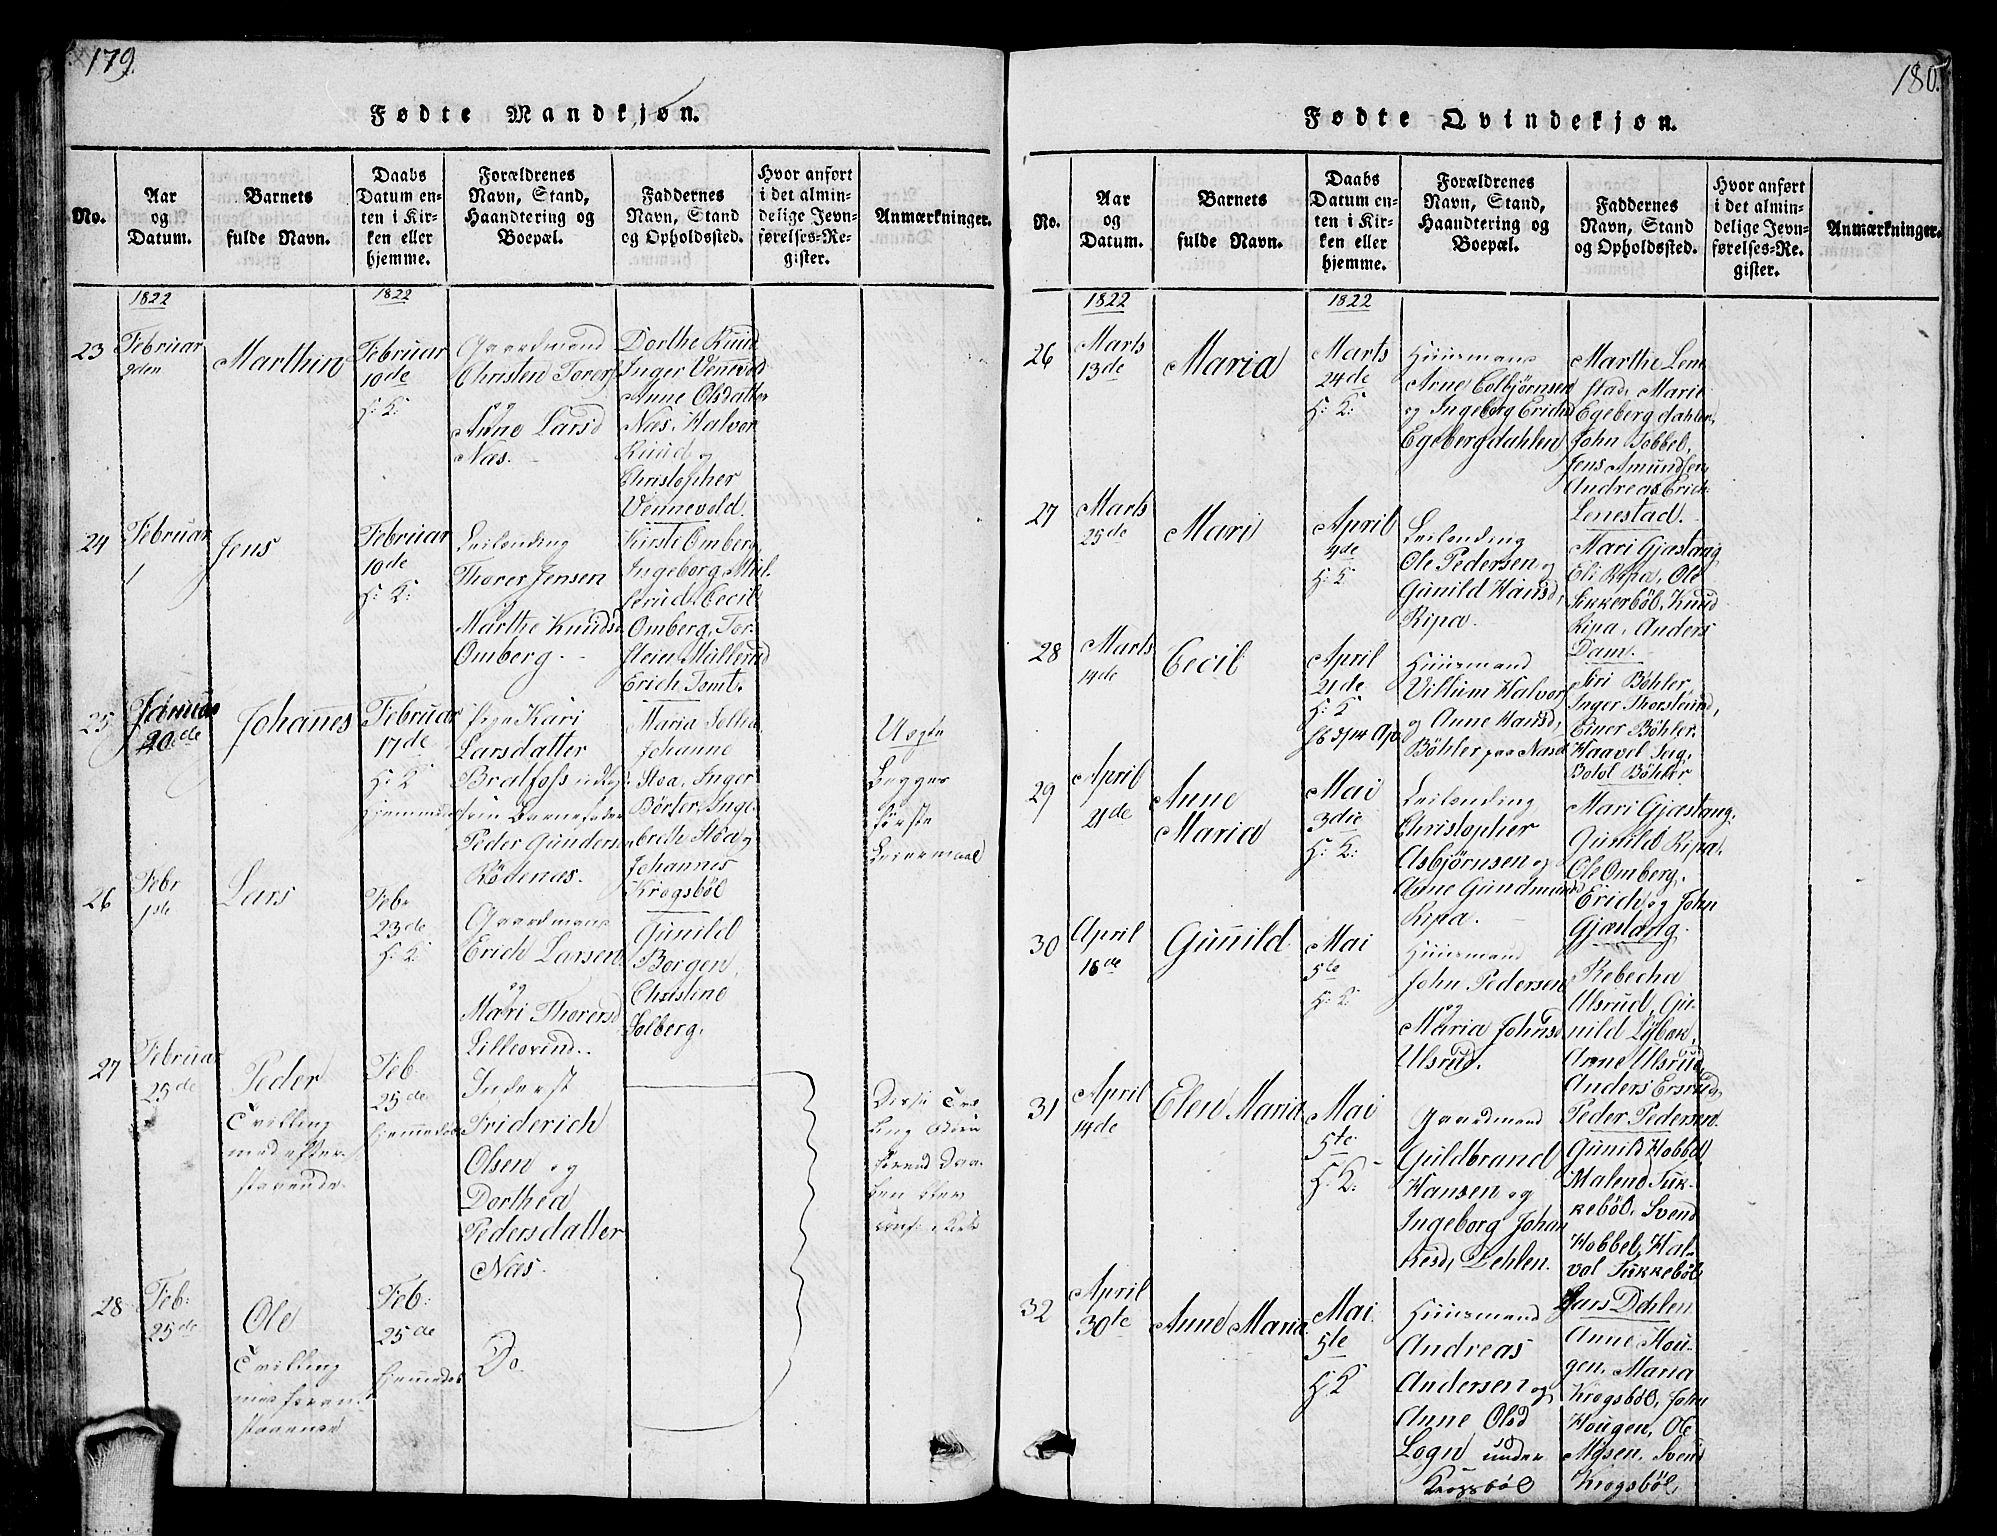 179.
Fødte Mandkjøn.
No.
Aar
og
Datum.
Barnets
fulde Navn.
Daabs
Datum en-
ten i Kir-
ken eller
hjemme.
Forældrenes
Navn, Stand,
Haandtering og
Boepæl.
Faddernes
Navn, Stand
og Opholdssted.
Hvor anført
i det almin-
delige Jevn-
førelses-Re-
gister.
Anmærkninger.
1822
1822
23
Februar
9den
Marthin
Februar
10de
H: K:
Gaardmand
Christen Torers
og
Anne Larsd
Næs.
Dorthe Ruud
Inger Vennevold
Anne Olsdatter
Næs, Halvor
Ruud og
Christopher
Vennevold.
24
Februar
1
Jens
Februar
10de
H: K:
Leilending
Thorer Jensen
og
Marthe Knudsd
Omberg.
Kirsti Omberg,
Ingeborg Mül-
lerud, Cecil
Omberg, Tor-
stein Müllerud
Erich Tomt.
25
Januar
20de
Johannes
Februar
17de
H: K:
hjemmedøbt
Pige Kari
Larsdatter
Bralfoss udlagt
til Barnefader
Peder Gunders
Rødenæs.
Maria
Johanne
Stoa, Inger
Børter, Inge-
breth Stoa og
Johannes
Krogsbøl
Uægte
Begges
første
Leiermaal
26
Febr
1ste
Lars
Febr
23de
H: K:
Gaardmand
Erich Larsen
og
Mari Thorersd
Lilleovind.
Gunild
Borgen,
Christine
Solberg.
27
Februar
25de
Peder
Tvilling
med efter-
staaende
Feb
25de
hjemmedøbt
Inderst
Friderich
Olsen og
Dorthea
Pedersdatter
Næs.
28
Feb:
25de
Ole
Tvilling
med foran
staaende
Feb:
25de
hjemmedøbt
Do
180.
Fødte Qvindekjøn.
No.
Aar
og
Datum.
Barnets
fulde Navn.
Daabs
Datum en-
ten i Kir-
ken eller
hjemme.
Forældrenes
Navn, Stand,
Haandtering og
Boepæl.
Faddernes
Navn, Stand
og Opholdssted.
Hvor anført
i det almin-
delige Jevn-
førelses-Re-
gister.
Anmærkninger.
1822
1822
26
Marts
13de
Maria
Marts
24de
H: K:
Huusmand
Arne Colbjørnsen
og Ingeborg Erichsd
Egebergdahlen
Marthe Lene
stad, Marie
Egebergdahlen,
John Hobbel,
Jens Amundsen
Andreas Erich
Lenestad.
27
Marts
25de
Mari
April
4de
H: K
Leilending
Ole Pedersen og
Gunild Hansd,
Ripa.
Mari Gjæstang
Eli Ripa, Ole
Sukkerbøl, Knud
Ripa, Anders
Dam.
28
Marts
14de
Cecil
April
21de
H: K
Huusmand
Villum Halvor
og Anne Hansd,
Bøhler paa Næsd
Siri Bøhler
Inger Thorslund,
Einer Bøhler,
Haavel Seig,
Bøhler
29
April
21de
Anne
Maria
Mai
3die
H: K:
Leilending
Christopher
Asbjørnsen og
Anne Gundmundsd
Ripa.
Mari Gjæstang.
Gunild Ripa,
Ole Omberg,
Erich og John
Gjæstang.
30
April
18de
Gunild
Mai
5te
H: K
Huusmand
John Pedersen
og
Maria Johnsd
Ulsrud.
Rebecha
Ulsrud, Gu-
nild
Arne Ulsrud,
Anders Ersrud og
Peder Pedersen
31
April
14de
Elen Maria
Mai
5te
H: K:
Gaardmand
Guldbrand
Hansen og
Ingeborg Johan
nesd, Dehlen.
Gunild Hobbel,
Malene Suk-
kebøl, Svend
Hobbel, Hal-
vol Sukkebøl
Lars Dehlen
32
April
30de
Anne Maria
Mai
5te
H: K
Huusmand
Andreas
Andersen og
Anne Olsd
Logn under
Krogsbøl
Anne Hou-
gen, Maria
Krogsbøl, John
Hougen, Ole
Mysen, Svend
Krogsbøl,